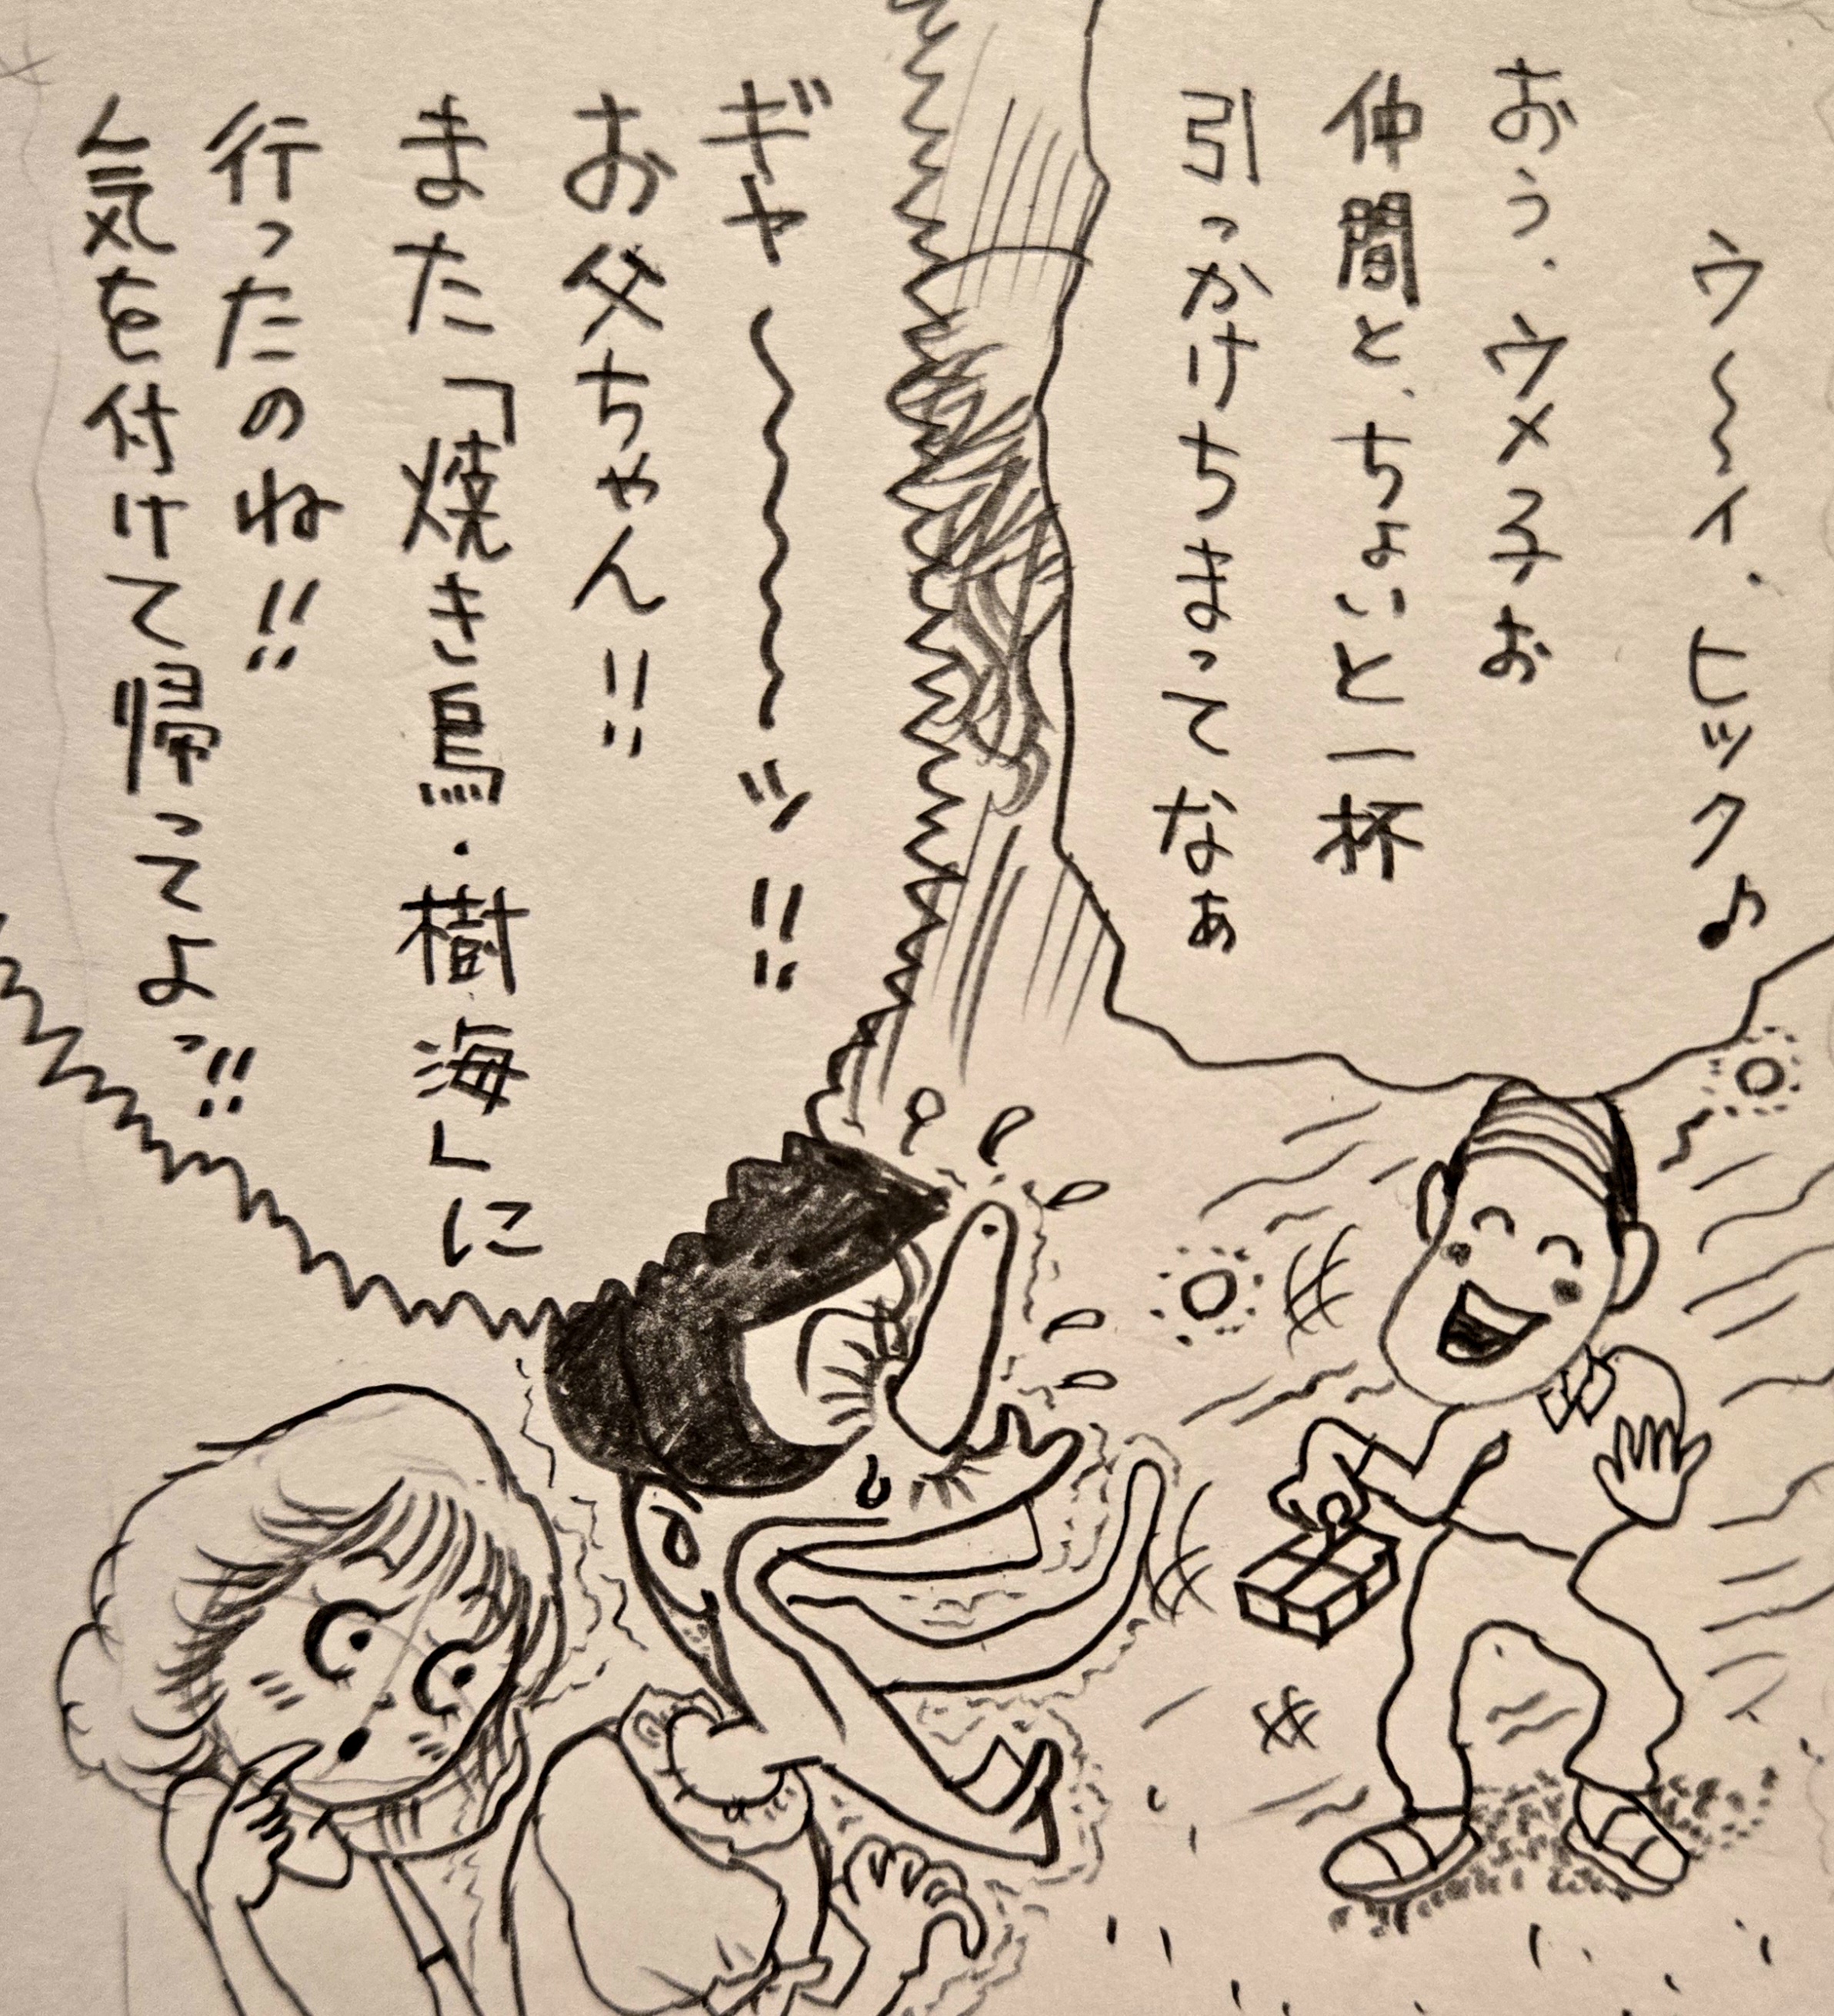 ウ〜〜イ．ヒック♪
おぅ．ウメ子お
仲間と、ちょいと一杯
引っかけちまってなぁ
ギャ〜〜〜〜〜ッ!!
お父ちゃん!!
また「焼き鳥・樹海」に
行ったのね!!
気を付けて帰ってよっ!!